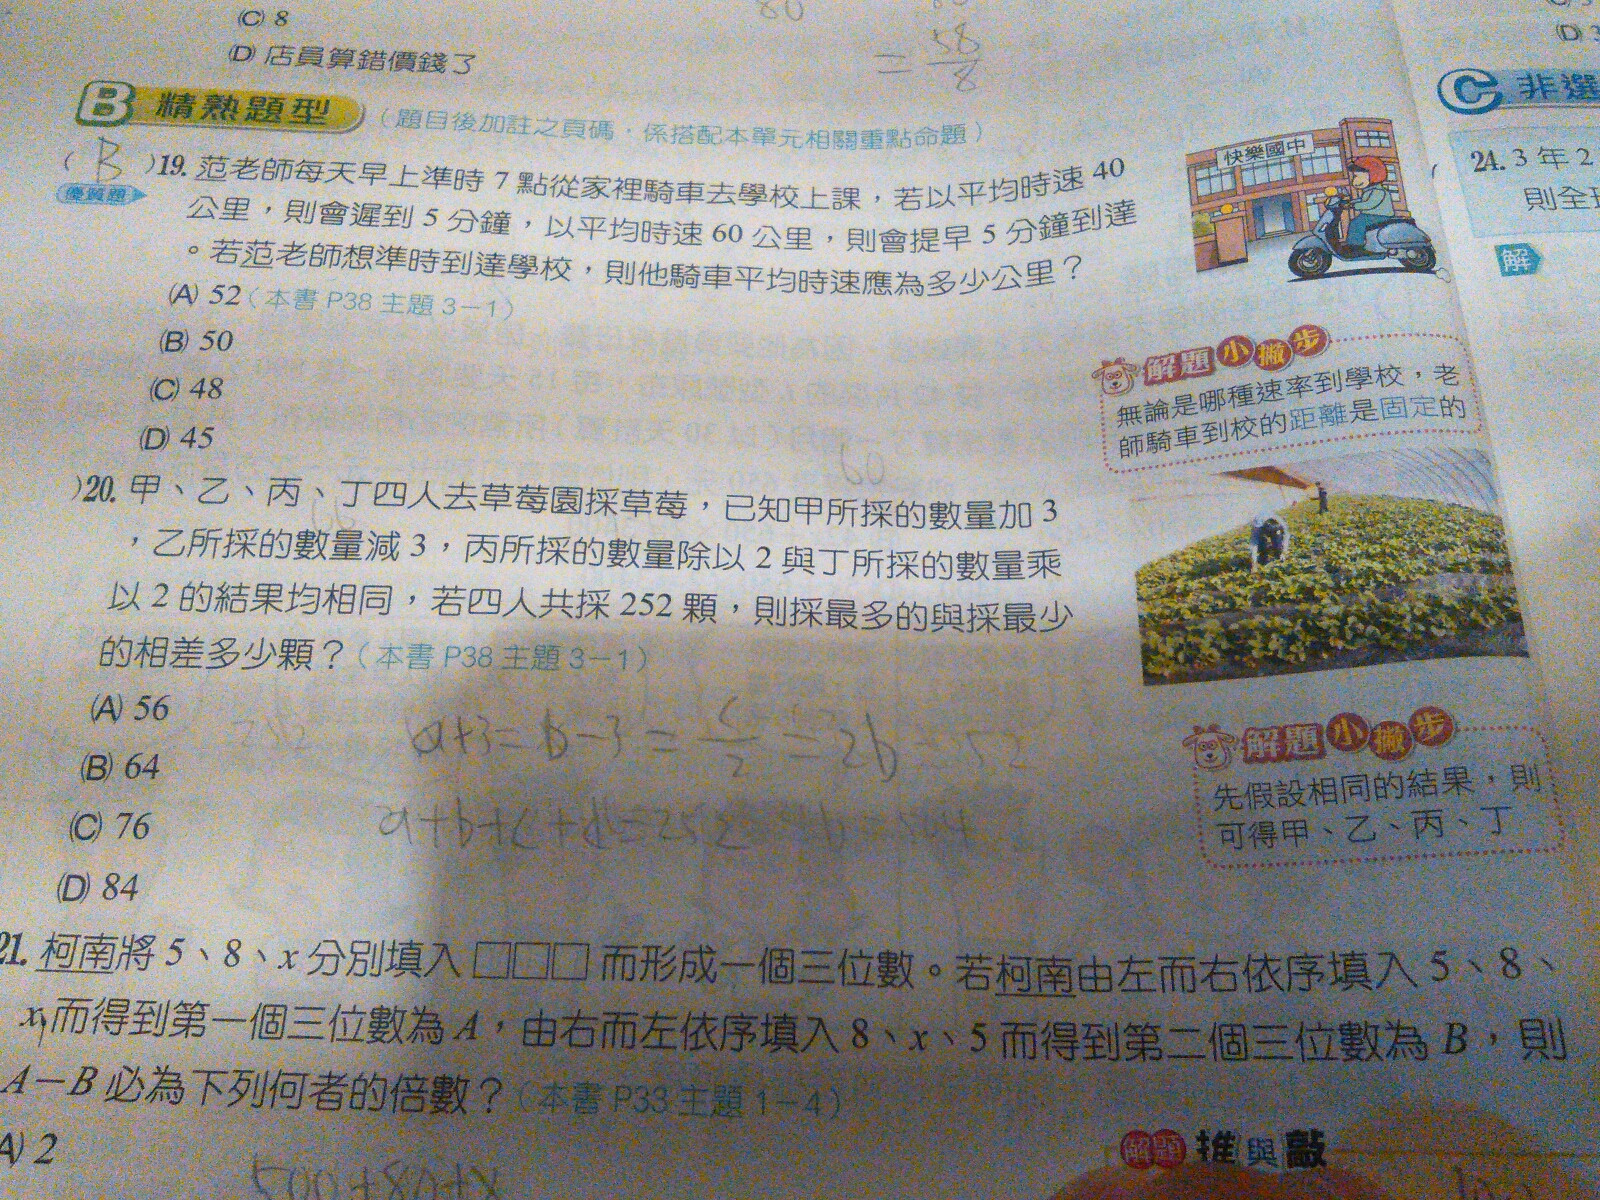 (C) 8
(D) 店員算錯價錢了
80
= 58/8
B 精熟題型 (題目後加註之頁碼，係搭配本單元相關重點命題)
( B )19. 范老師每天早上準時 7 點從家裡騎車去學校上課，若以平均時速 40
優質題
公里，則會遲到 5 分鐘，以平均時速 60 公里，則會提早 5 分鐘到達
。若范老師想準時到達學校，則他騎車平均時速應為多少公里？
(A) 52 (本書 P38 主題 3－1)
(B) 50
(C) 48
(D) 45
快樂國中
解題小撇步
無論是哪種速率到學校，老
師騎車到校的距離是固定的
60
)20. 甲、乙、丙、丁四人去草莓園採草莓，已知甲所採的數量加 3
，乙所採的數量減 3，丙所採的數量除以 2 與丁所採的數量乘
以 2 的結果均相同，若四人共採 252 顆，則採最多的與採最少
的相差多少顆？(本書 P38 主題 3－1)
(A) 56
(B) 64
(C) 76
(D) 84
252
a+3=b-3=c/2=2b=252
a+b+c+d=252
解題小撇步
先假設相同的結果，則
可得甲、乙、丙、丁
21. 柯南將 5、8、x 分別填入 □□□ 而形成一個三位數。若柯南由左而右依序填入 5、8、
x，而得到第一個三位數為 A，由右而左依序填入 8、x、5 而得到第二個三位數為 B，則
A－B 必為下列何者的倍數？(本書 P33 主題 1－4)
A) 2
500+80+x
解題 推與敲
C 非選
24. 3 年 2
則全班
解